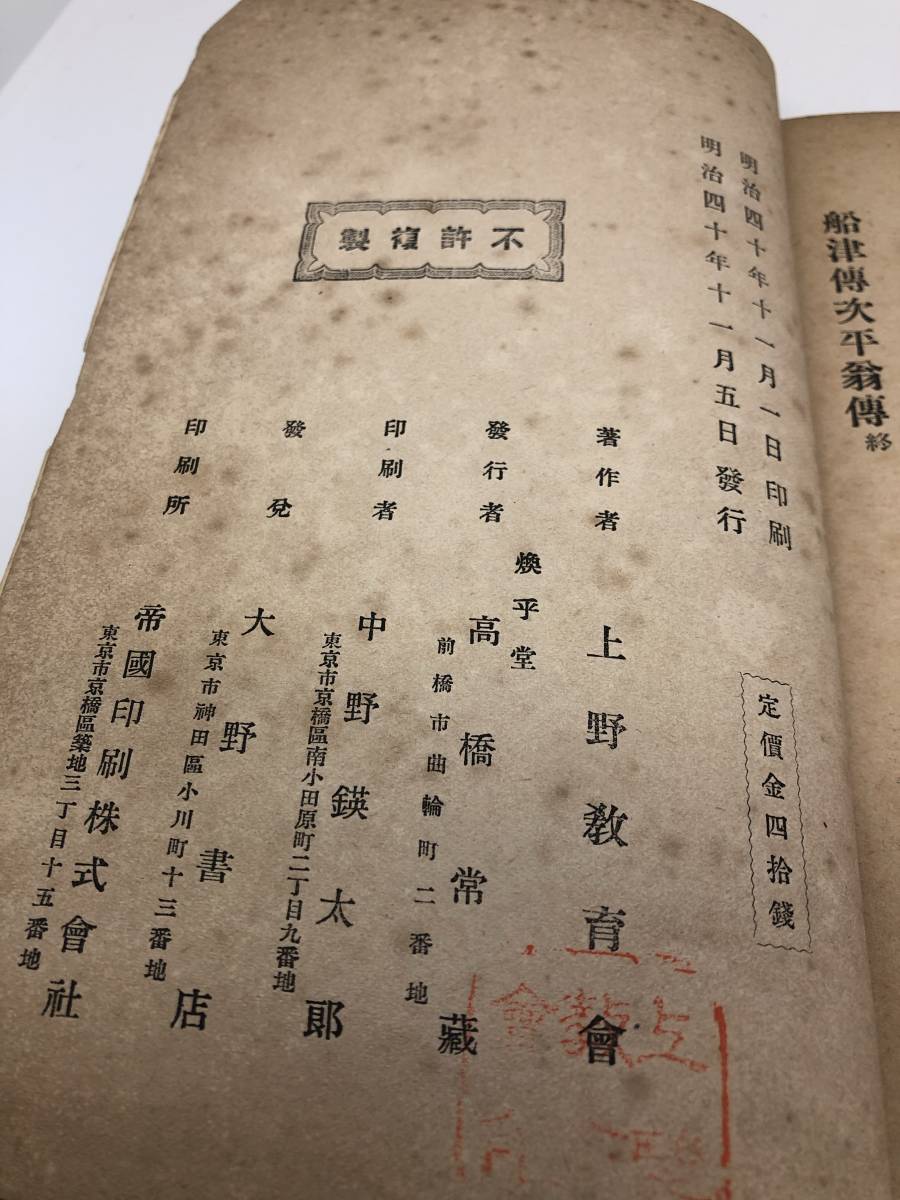 船津傳次平翁傳 終
明治四十年十一月一日印刷
明治四十年十一月五日發行
定價金四拾錢
不許復製
著作者 上野教育會
煥乎堂
發行者 高橋常藏
前橋市曲輪町二番地
印刷者 中野鍈太郎
東京市京橋區南小田原町二丁目九番地
發兌 大野書店
東京市神田區小川町十三番地
印刷所 帝國印刷株式會社
東京市京橋區築地三丁目十五番地